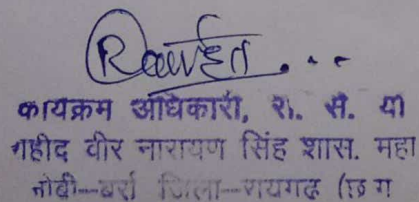 कायक्रम अधिकारी, रा. से. यो
शहीद वीर नारायण सिंह शास. महा
जोबी--बर्रा जिला--रायगढ़ (छ ग